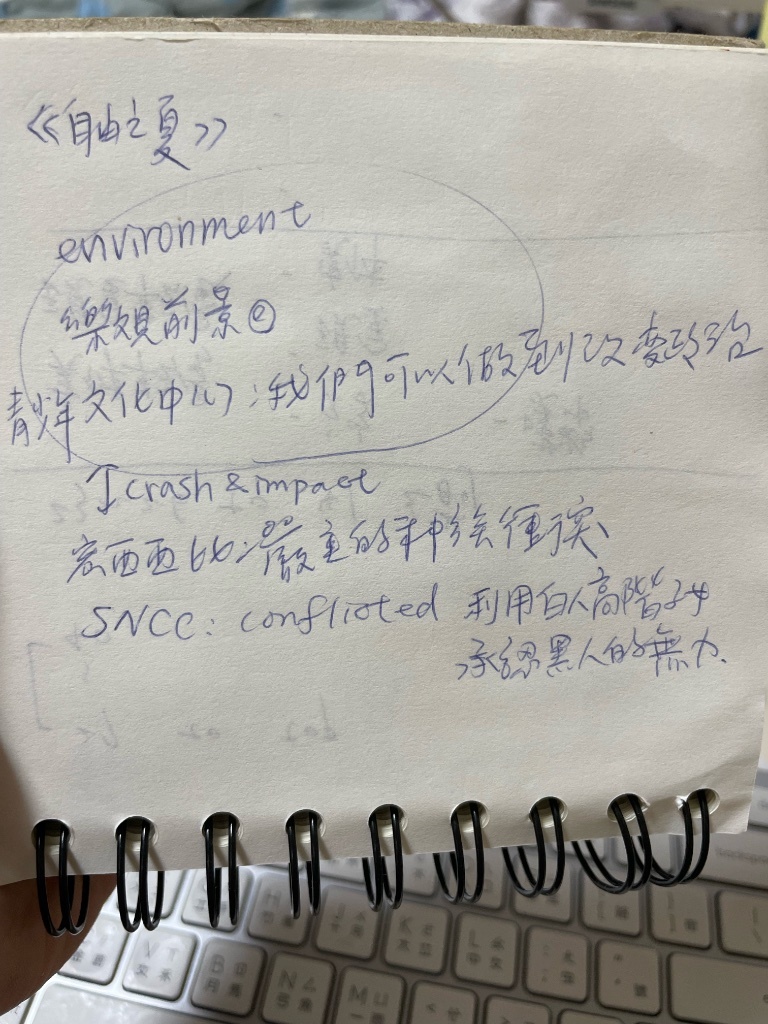 《自由之夏》
environment
樂觀前景
青少年文化中心:我們可以做到改變政治
↑crash & impact
密西西比:嚴重的種族衝突
SNCC: conflicted 利用白人高階子女
承認黑人的無力